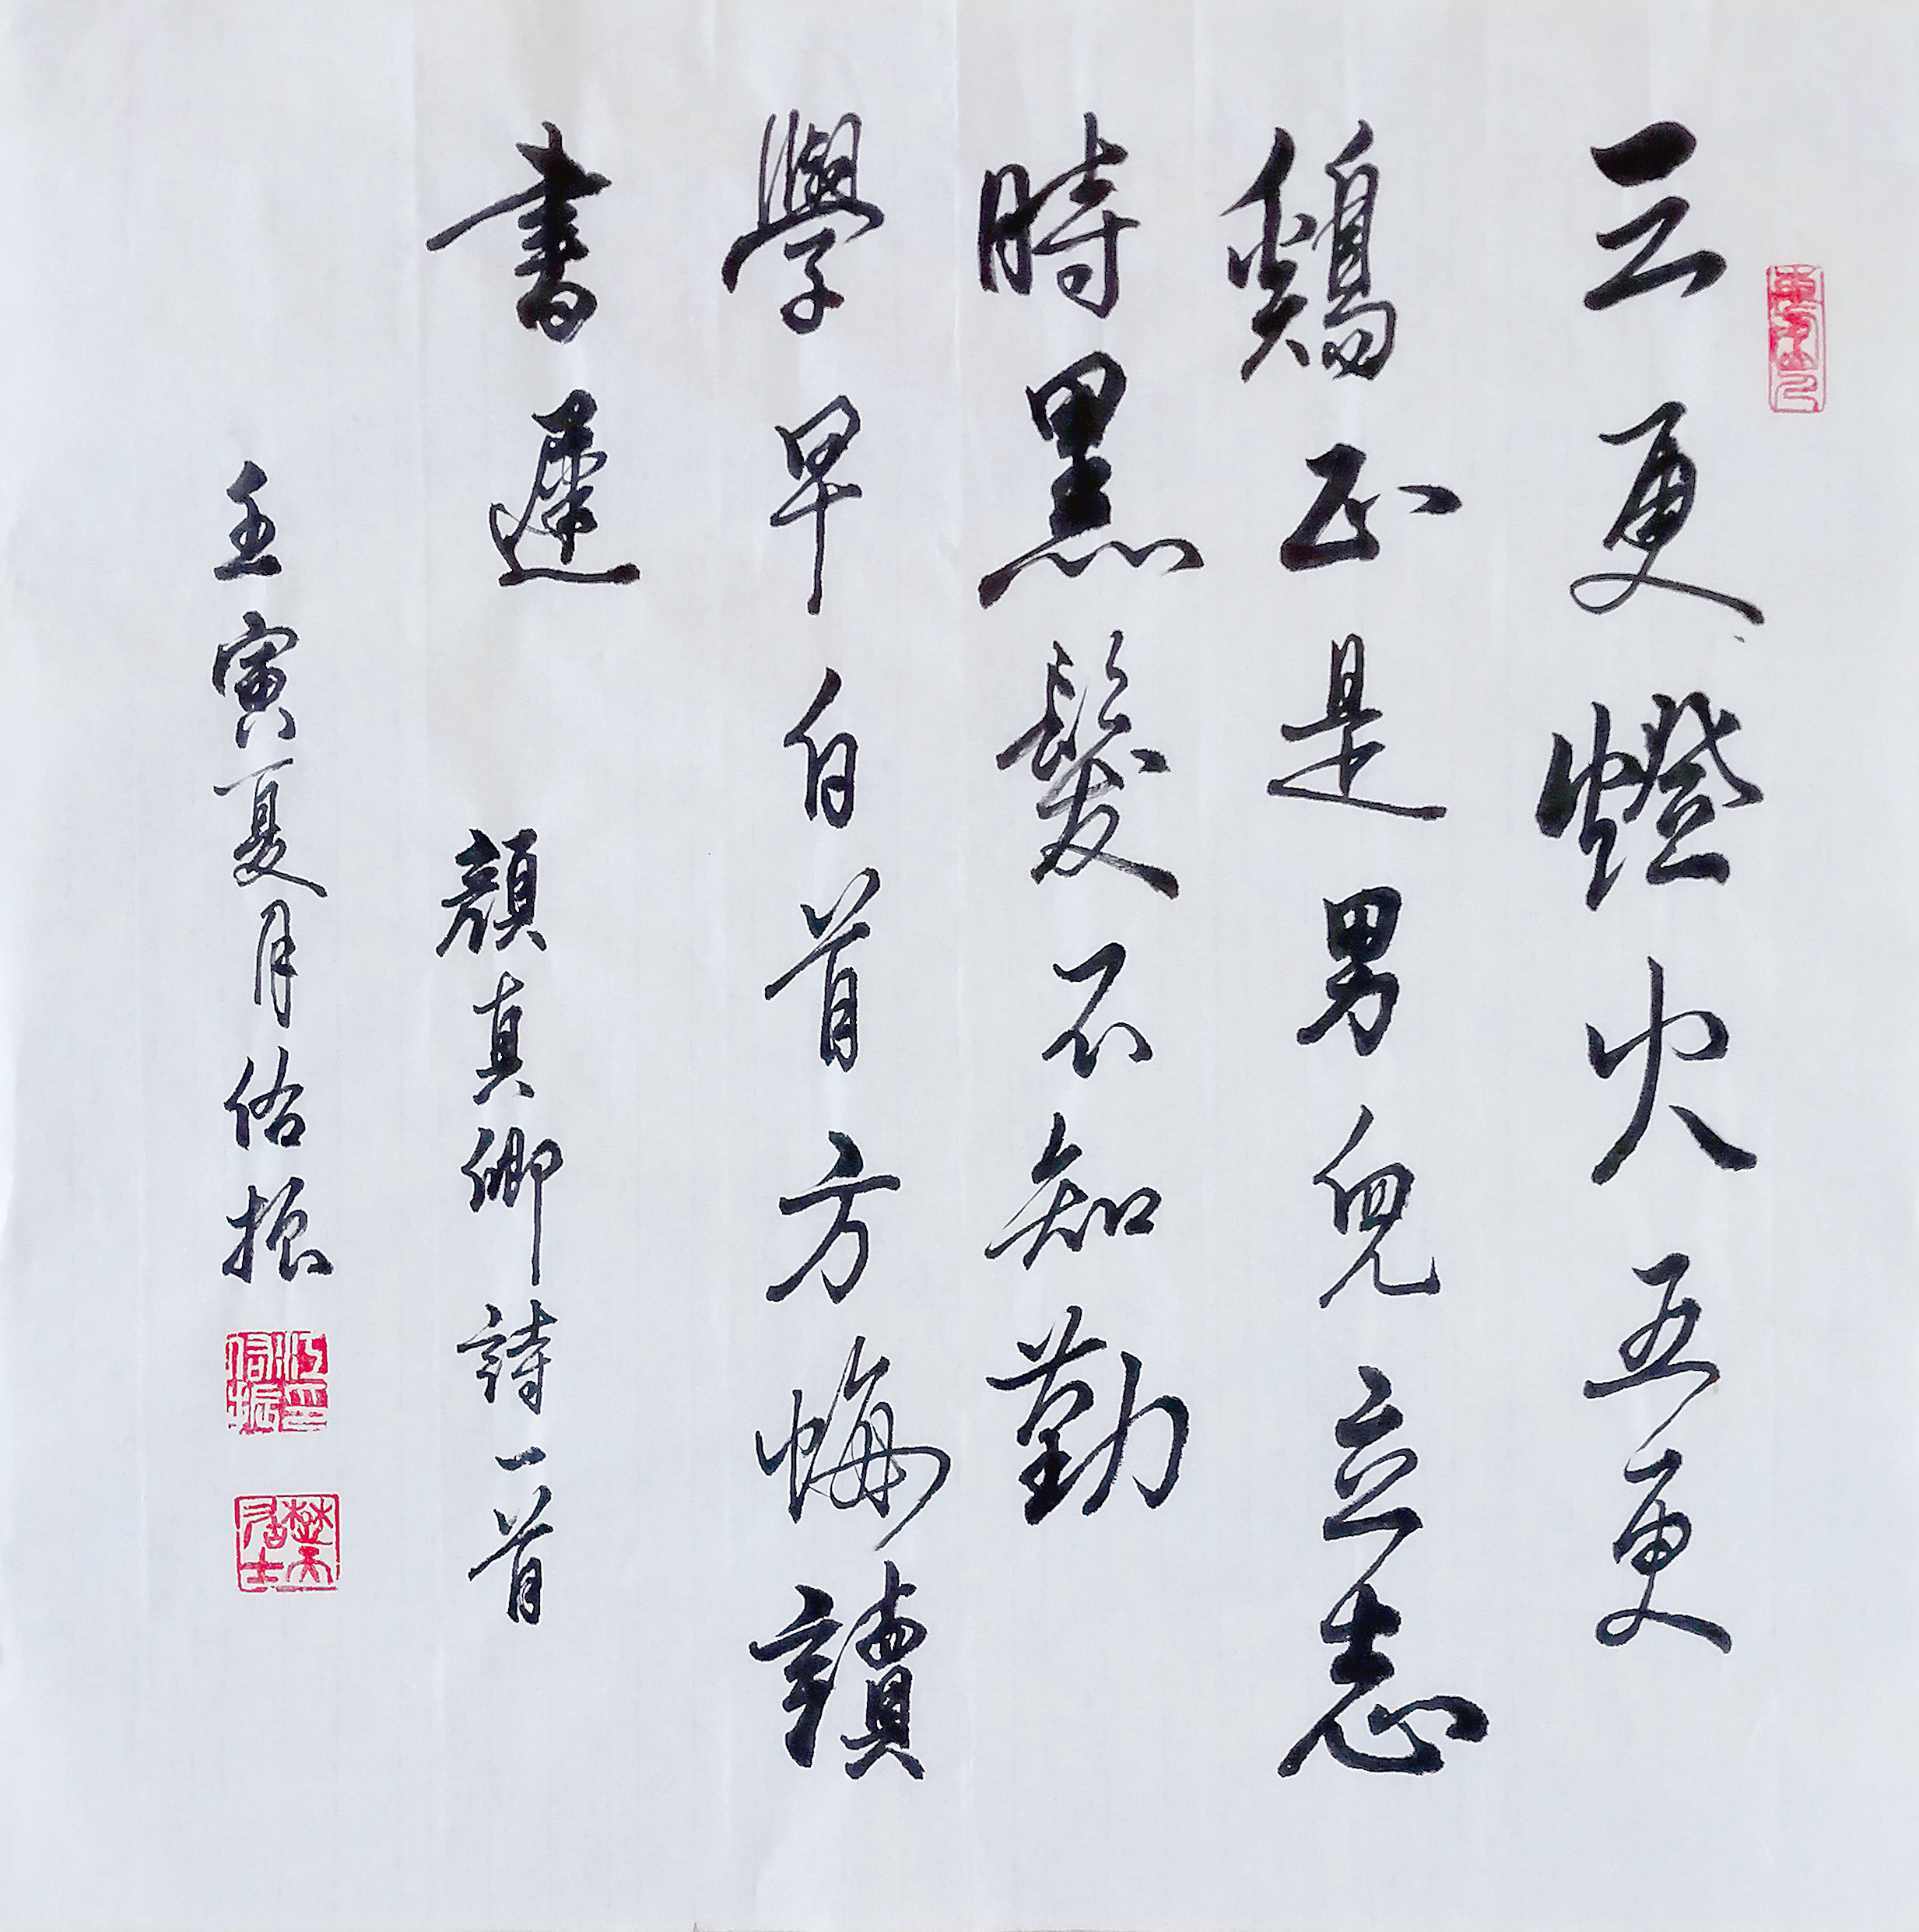 三更燈火五更
鷄正是男兒立志
時黑髮不知勤
學早白首方悔讀
書遲
顏真卿詩一首
壬寅夏月振